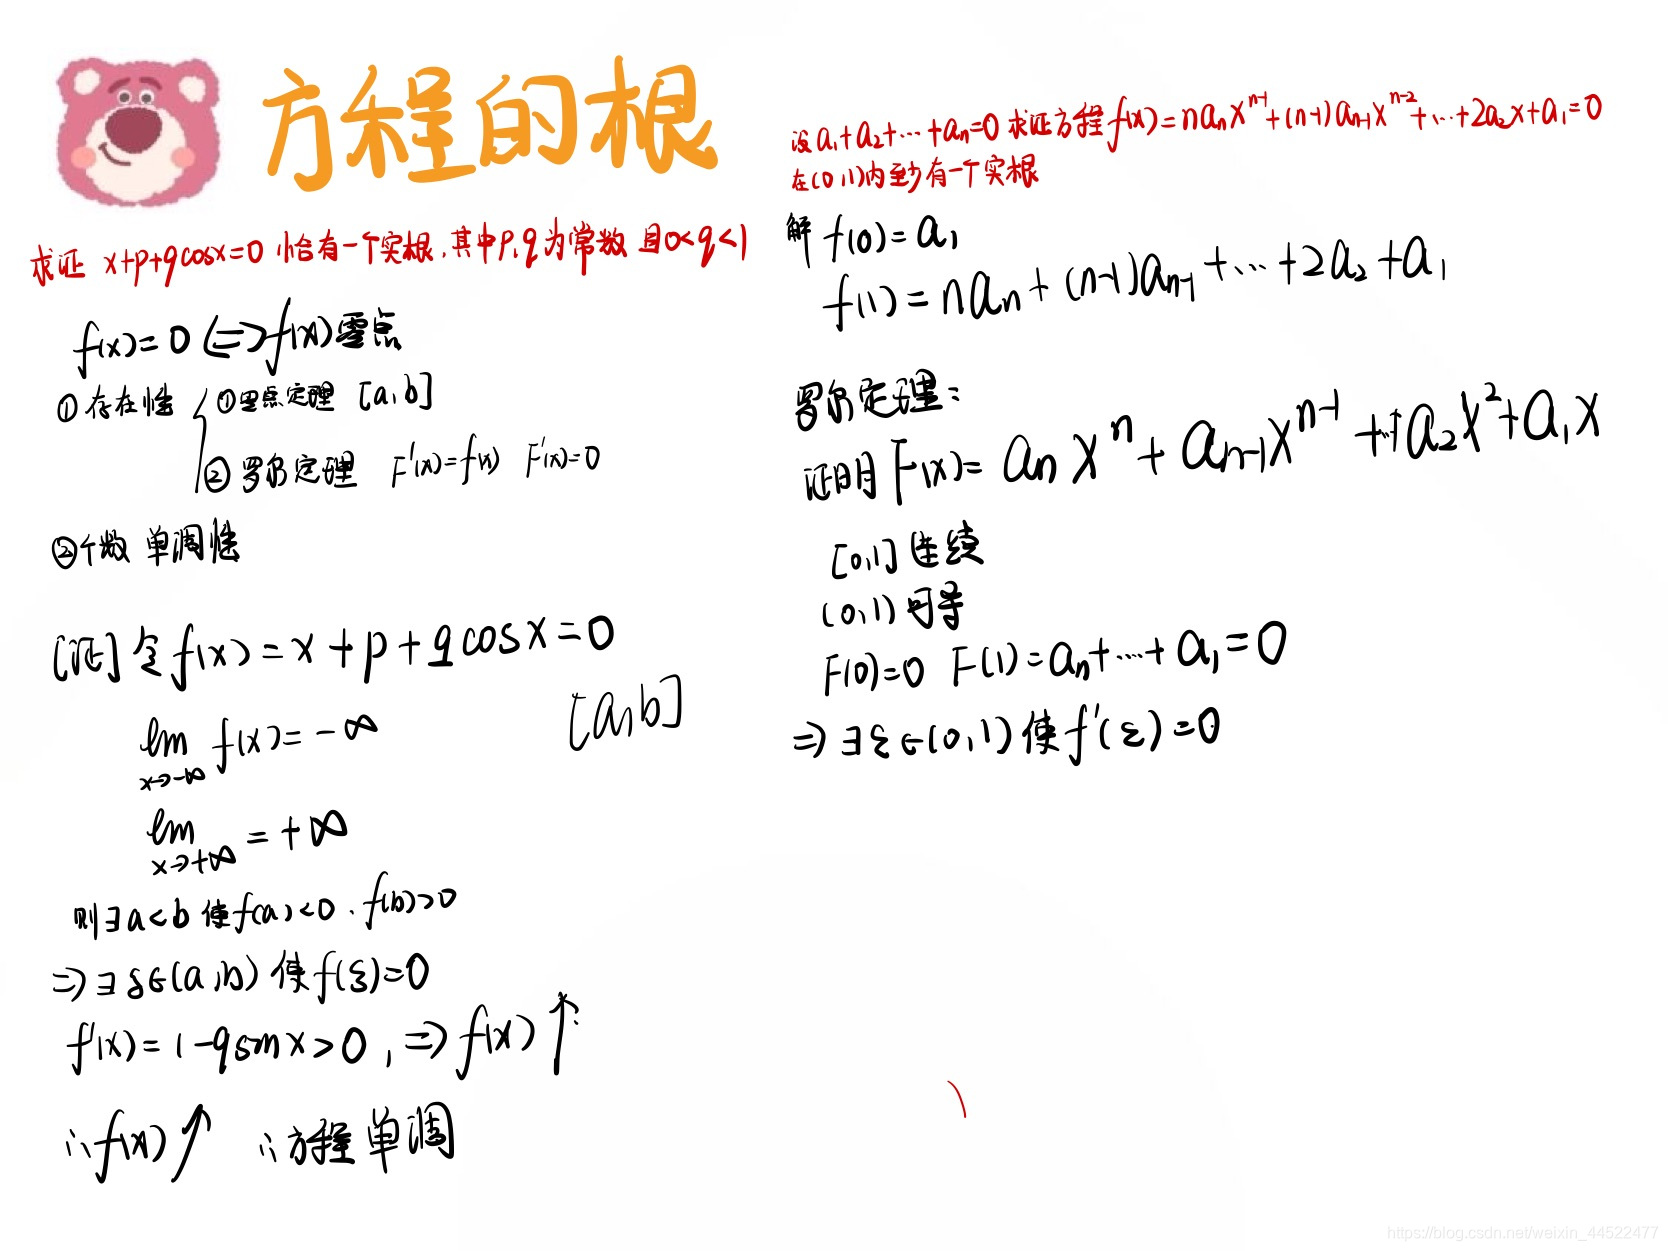 方程的根
求证 x+p+qcosx=0 恰有一个实根,其中p,q为常数 且0<q<1
f(x)=0 <=> f(x)零点
①存在性 ①零点定理 [a,b]
②罗尔定理 F'(x)=f(x) F'(x)=0
②个数 单调性
[证] 令f(x)=x+p+qcosx=0
[a,b]
lim f(x)=-∞
x→-∞
lim =+∞
x→+∞
则∃a<b 使f(a)<0、f(b)>0
⇒∃ξ∈(a,b) 使f(ξ)=0
f'(x)=1-qsinx>0,⇒f(x)↑
∴f(x)↑ ∴方程单调
设a₁+a₂+…+aₙ=0 求证方程f(x)=naₙxⁿ⁻¹+(n-1)aₙ₋₁xⁿ⁻²+…+2a₂x+a₁=0
在(0,1)内至少有一个实根
解 f(0)=a₁
f(1)=naₙ+(n-1)aₙ₋₁+…+2a₂+a₁
罗尔定理:
证明F(x)=aₙxⁿ+aₙ₋₁xⁿ⁻¹+…+a₂x²+a₁x
[0,1]连续
(0,1)可导
F(0)=0 F(1)=aₙ+…+a₁=0
⇒∃ξ∈(0,1)使f'(ξ)=0
https://blog.csdn.net/weixin_44522477